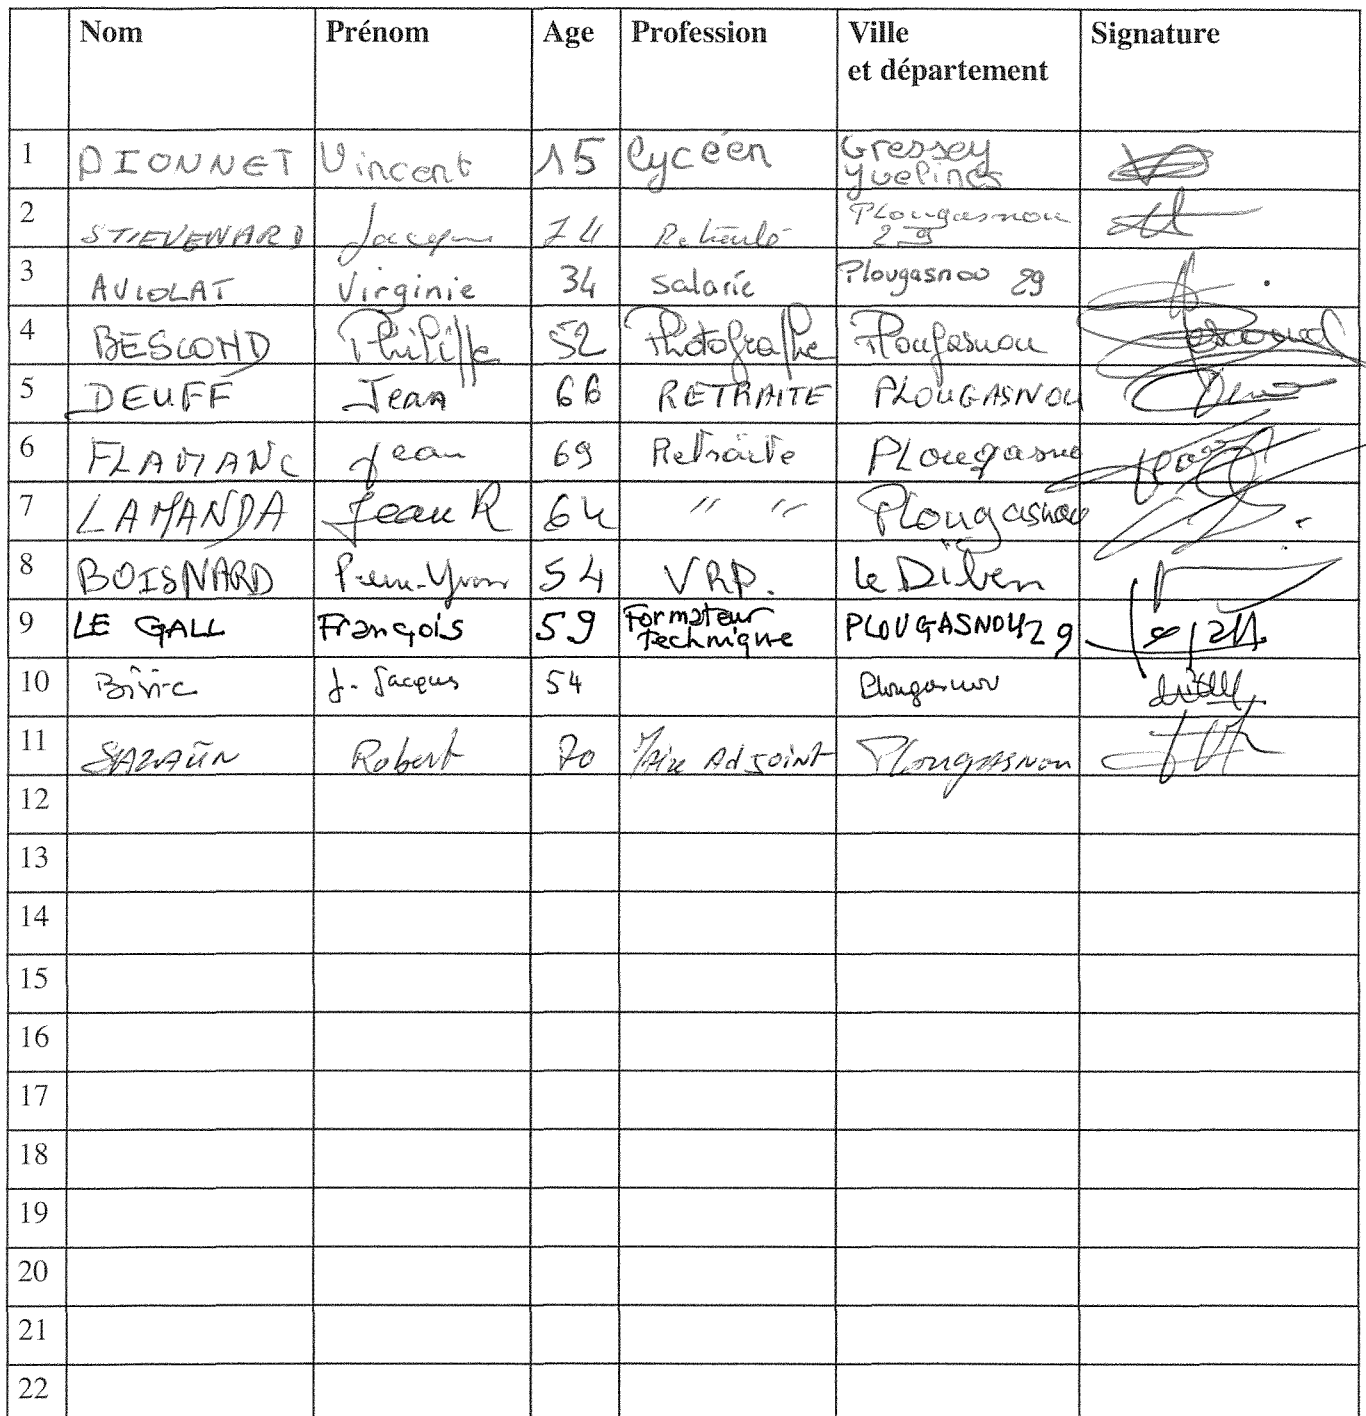 Nom Prénom Age Profession Ville et département Signature
1 DIONNET Vincent 15 lycéen Gressey Yvelines
2 STIEVENARD Jacques 74 Retraité Plougasnou 29
3 AVIOLAT Virginie 34 Salarié Plougasnou 29
4 BESCOND Philippe 52 Photographe Plougasnou
5 DEUFF Jean 66 RETRAITE PLOUGASNOU
6 FLAMANC Jean 69 Retraite Plougasnou
7 LAMANDA Jean R 64 " " Plougasnou
8 BOISNARD Pierre-Yvon 54 VRP. Le Diben
9 LE GALL François 59 Formateur Technique PLOUGASNOU 29
10 J. Jacques 54 Plougasnou
11 Robert 70 Maire Adjoint Plougasnou
12
13
14
15
16
17
18
19
20
21
22